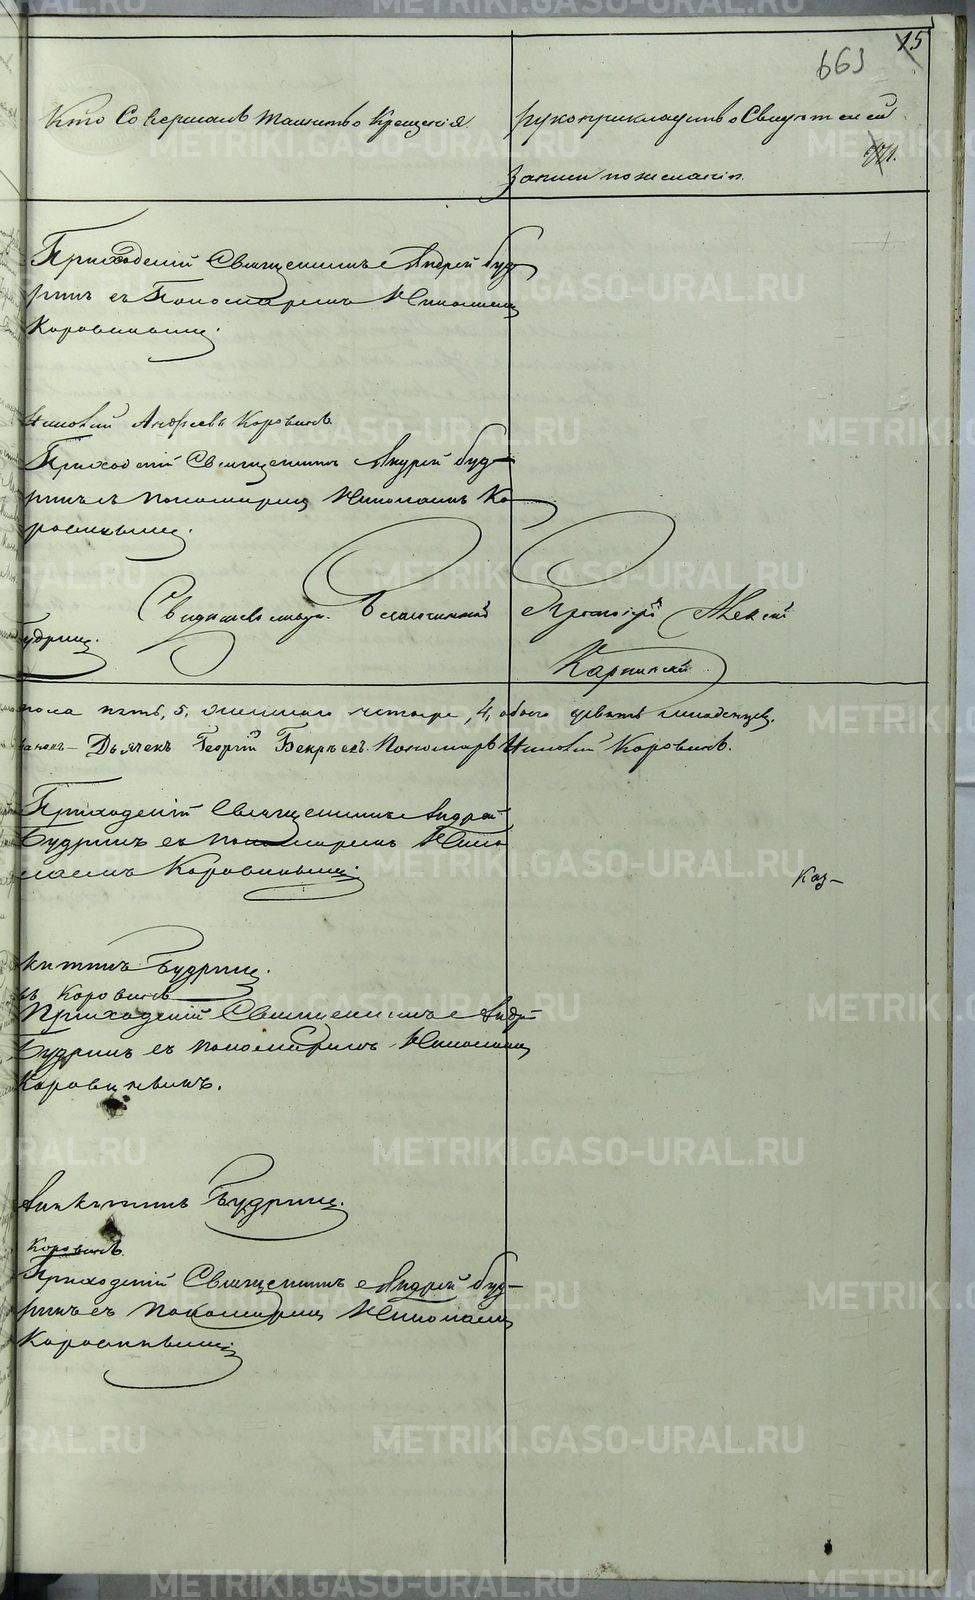 663 15
Кто Совершалъ таинство Крещенія.
рукоприкладство Свидѣтелей
записи по желанію.
Приходскій Священникъ Андрей Буд-
ринъ съ Пономаремъ Николаемъ
Коровинымъ.
Николай Андреевъ Коровинъ
Приходскій Священникъ Андрей Буд-
ринъ съ пономаремъ Николаемъ Ко-
ровинымъ.
Свидѣтельствовалъ Благочинный Протоіерей Алексій
Будринъ.
Карпинскій
пола пять, 5, женскаго четыре, 4, обоего девять младенцевъ.
Дьячекъ Георгій Бекрѣевъ. Пономарь Николай Коровинъ.
Приходскій Священникъ Андрей
Будринъ съ пономаремъ Нико-
лаемъ Коровинымъ.
Каз-
Будринъ.
въ Коровинъ
Приходскій Священникъ Андр-
Будринъ съ пономаремъ Николаемъ
Коровинымъ.
Будринъ.
Коровинъ.
Приходскій Священникъ Андрей Буд-
ринъ съ пономаремъ Николаемъ
Коровинымъ
METRIKI.GASO-URAL.RU